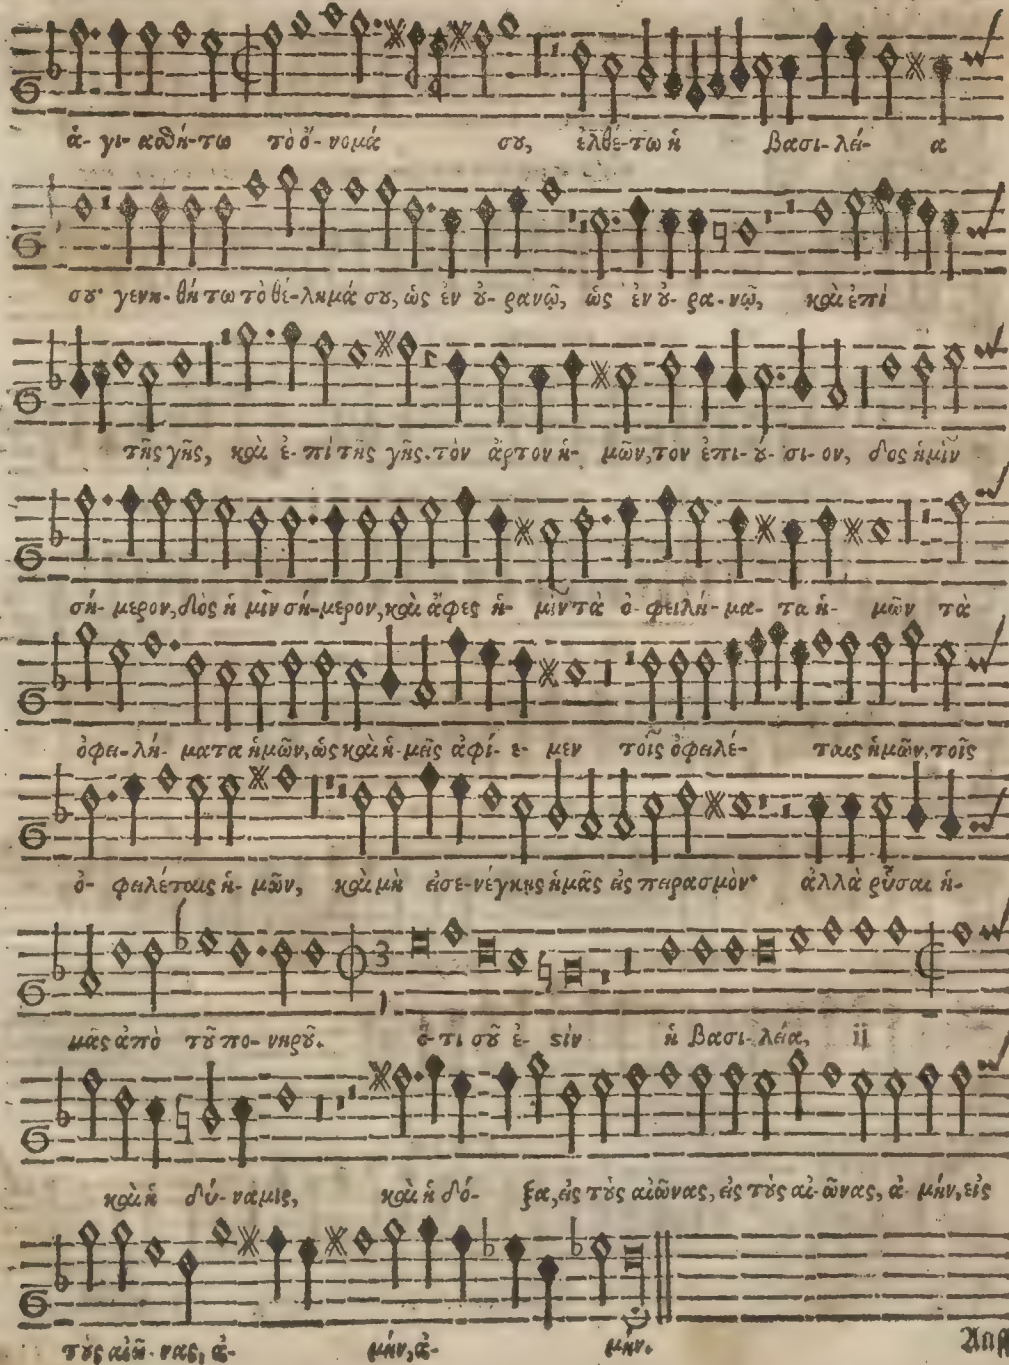 ἁ- γι- ασθή-τω τὸ ὄ- νομά σȣ, ἐλθέ-τω ἡ βασι-λεί- α
σȣ· γενη-θή τω τὸ θέ-λημά σȣ, ὡς ἐν ȣ̓-ρανῷ, ὡς ἐν ȣ̓- ρα-νῷ, καὶ ἐπὶ
τῆς γῆς, καὶ ἐ- πὶ τῆς γῆς. τὸν ἄρτον ἡ- μῶν, τὸν ἐπι- ȣ́- σι- ον, δὸς ἡμῖν
σή- μερον, δὸς ἡ μῖν σή-μερον, καὶ ἄφες ἡ- μῖν τὰ ὀ- φειλή- μα- τα ἡ- μῶν τὰ
ὀφει-λή- ματα ἡμῶν, ὡς καὶ ἡ-μεῖς ἀφί- ε- μεν τοῖς ὀφειλέ- ταις ἡμῶν, τοῖς
ὀ- φειλέταις ἡ- μῶν, καὶ μὴ εἰσε-νέγκῃς ἡμᾶς εἰς πειρασμὸν· ἀλλὰ ῥῦσαι ἡ-
μᾶς ἀπὸ τȣ͂ πο- νηρȣ͂. ὅ- τι σȣ͂ ἐ- sὶν ἡ βασι- λεία, ij
καὶ ἡ δύ- ναμις, καὶ ἡ δό- ξα, εἰς τȣ̀ς αἰῶνας, εἰς τȣ̀ς αἰ- ῶνας, ἀ- μήν, εἰς
τȣ̀ς αἰῶ- νας, ἀ- μήν, ἀ- μήν.